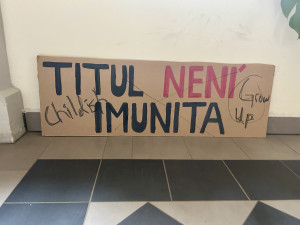 TITUL NENÍ
IMUNITA
Childish
Grow
Up